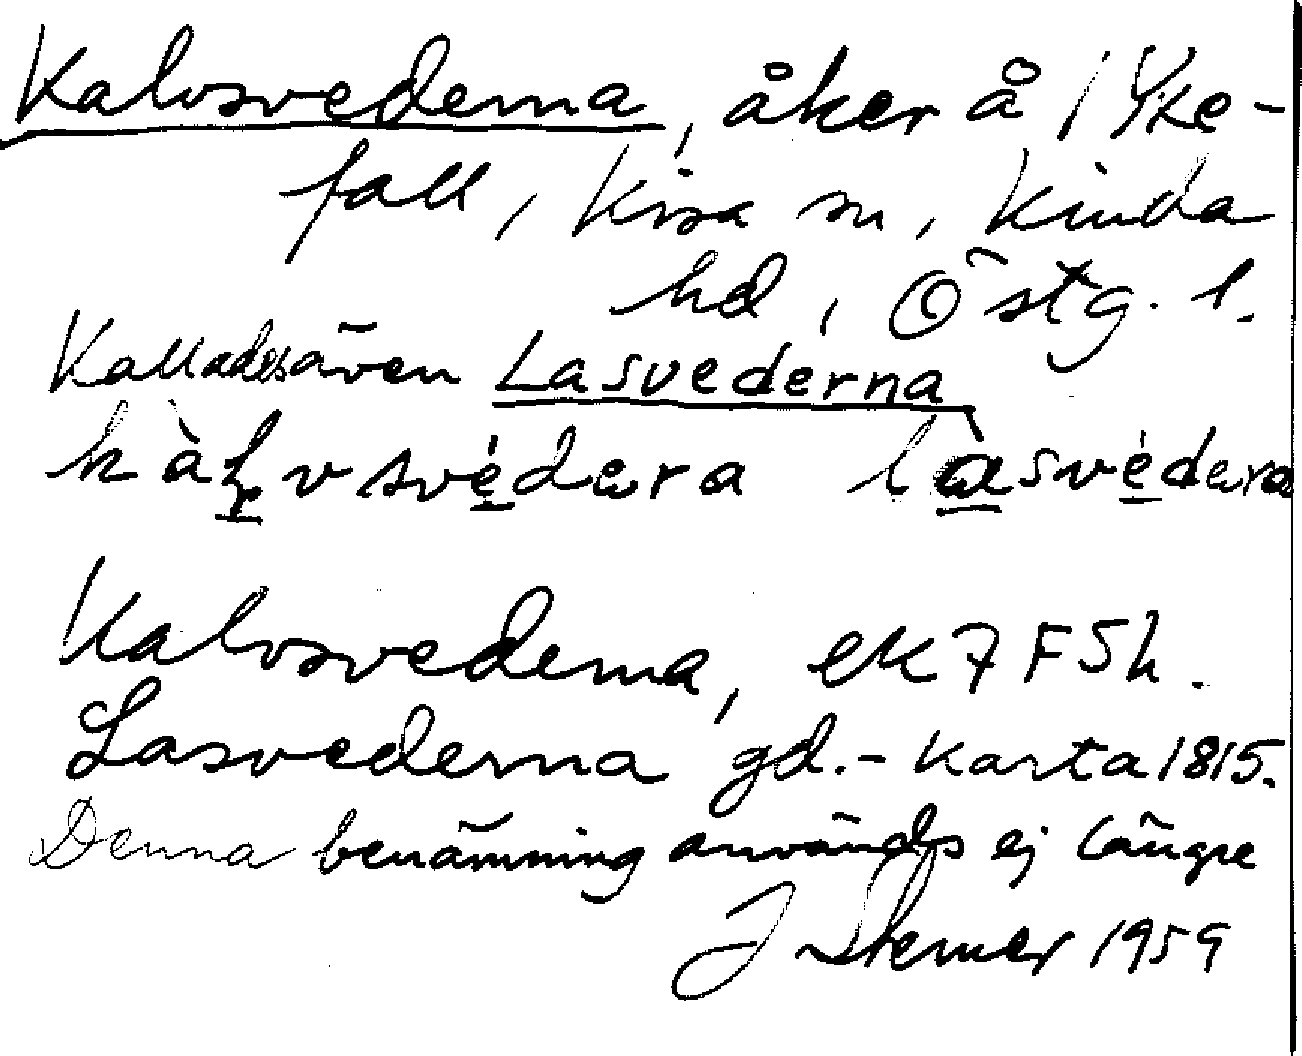 Kalvsvederna, åker å 1 Yxe-
fall, Kisa sn, Kinda
hd, Östg. l.
Kallades även Lasvederna
kàlvsvédera làsvédera
Kalvsvederna, ek 7 F 5 h.
Lasvederna gd.- karta 1815.
Denna benämning används ej längre
J Sterner 1959